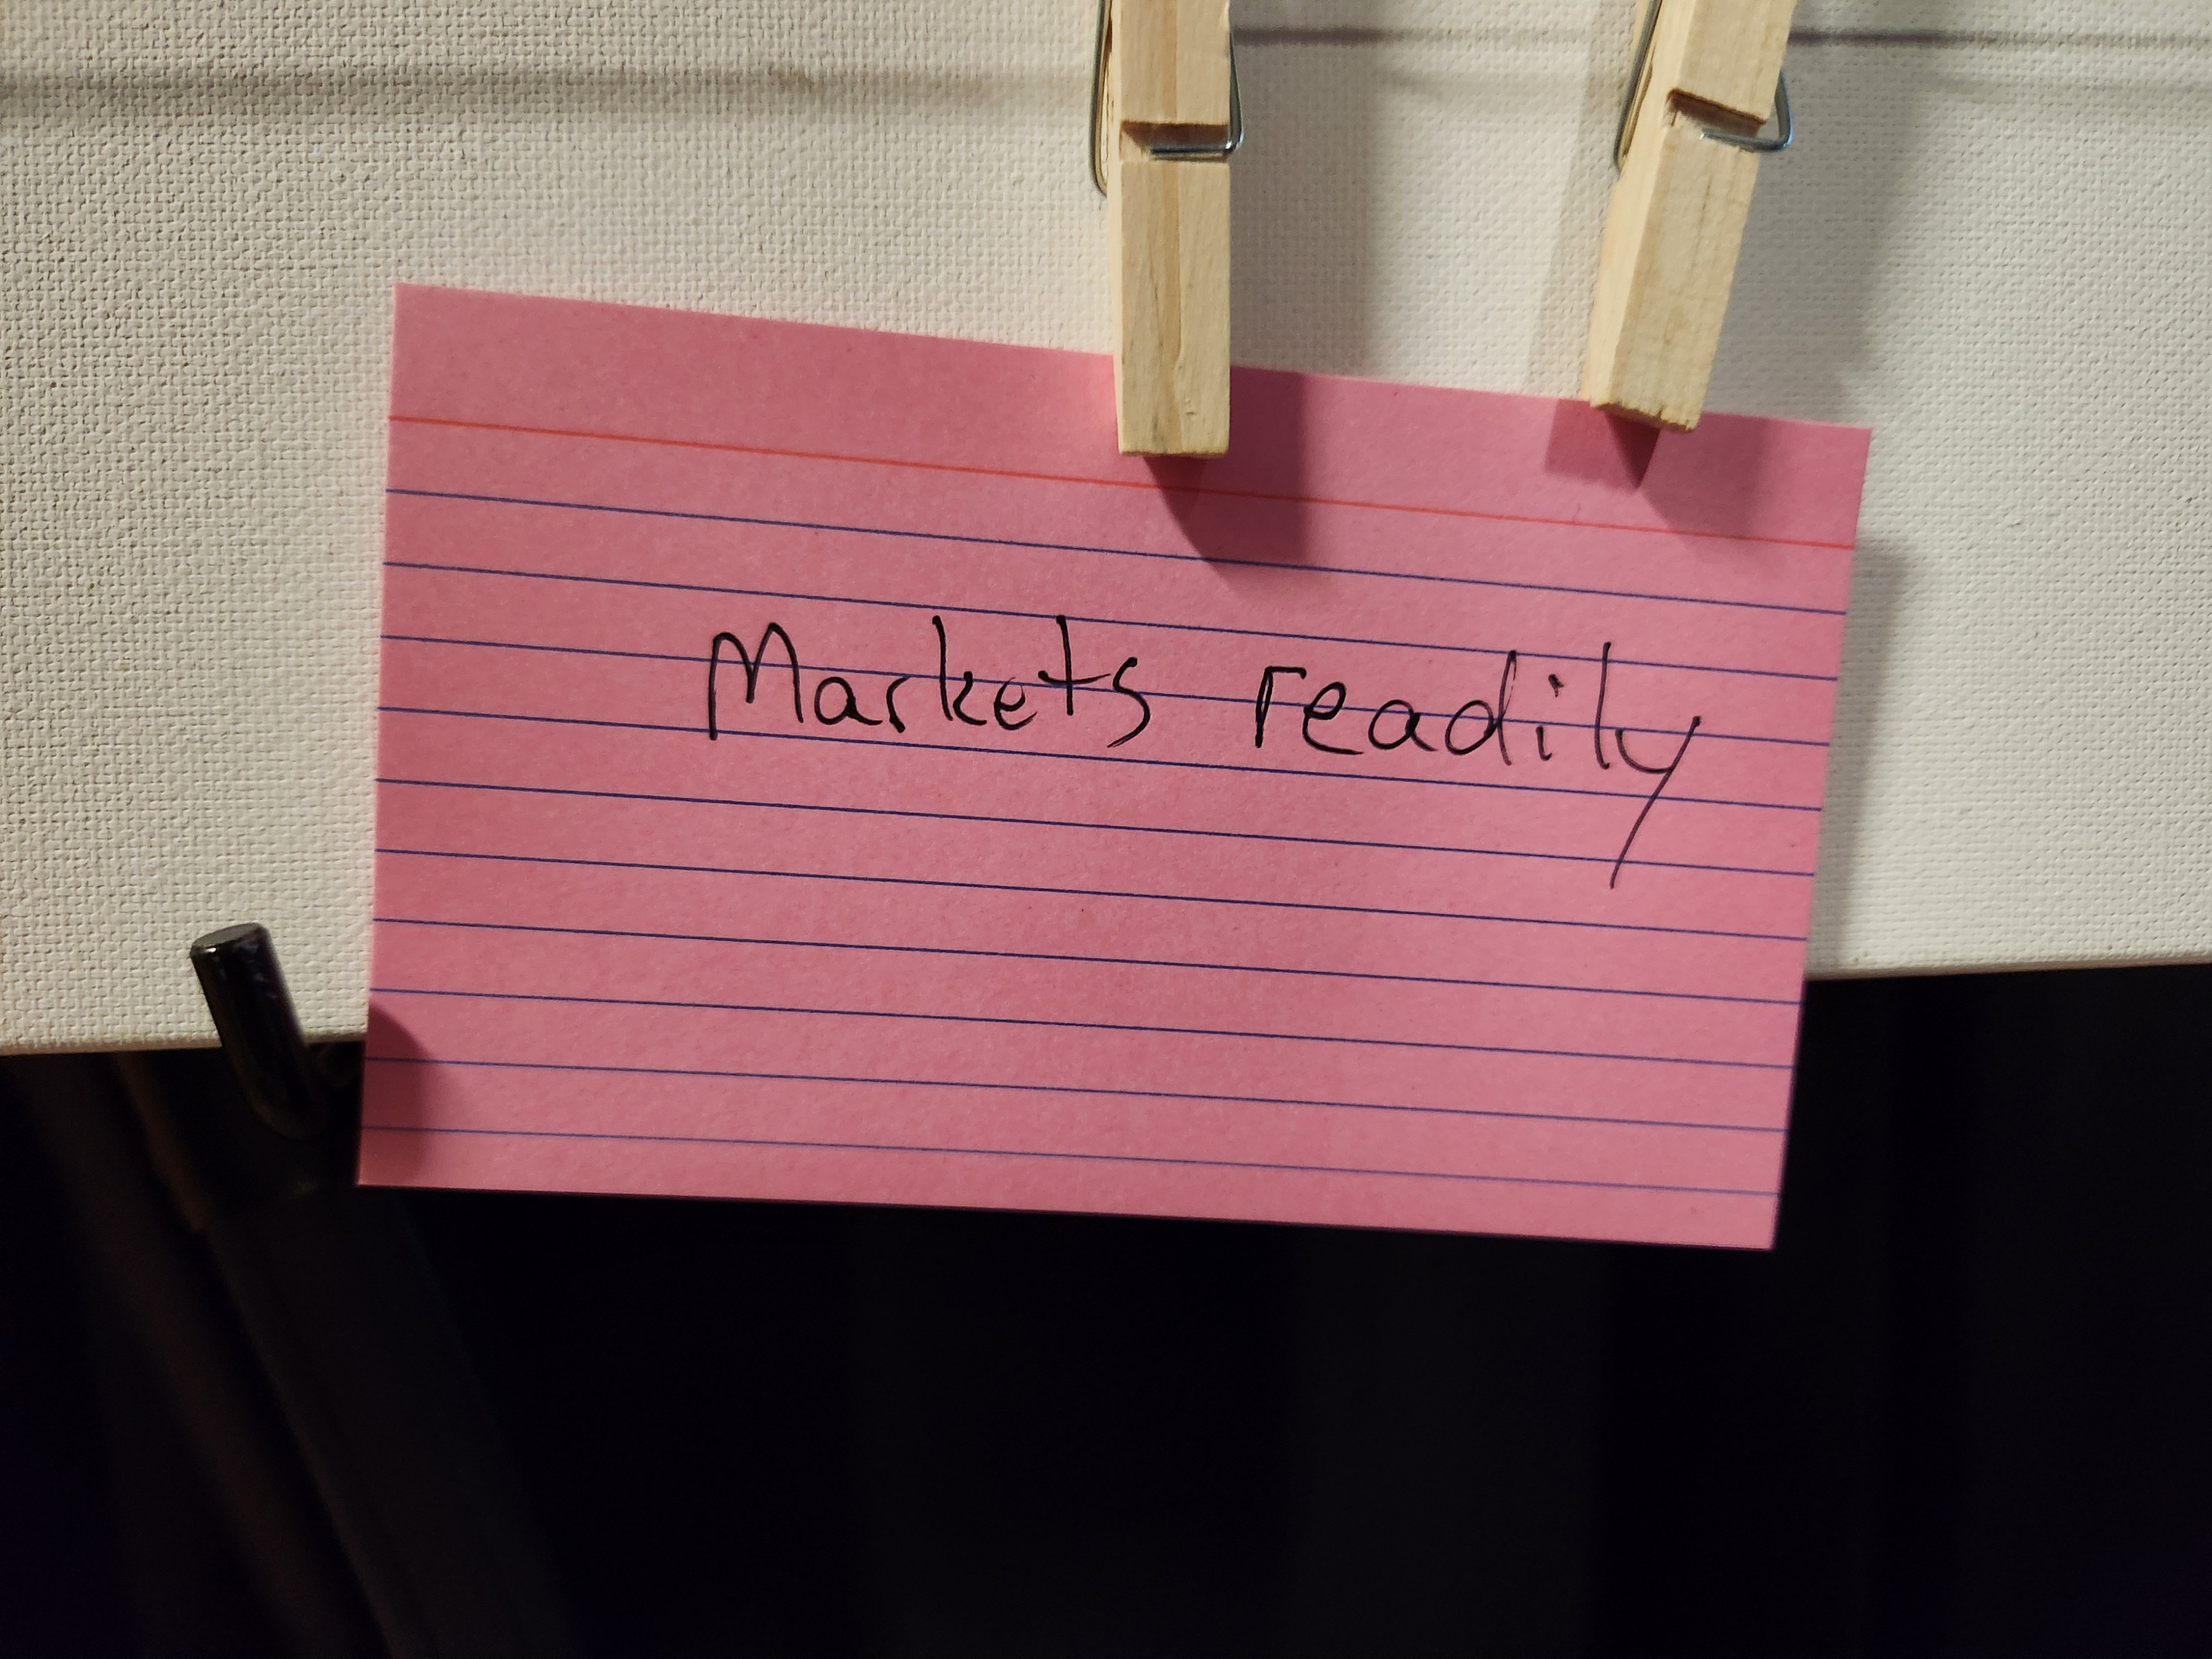 Markets readily